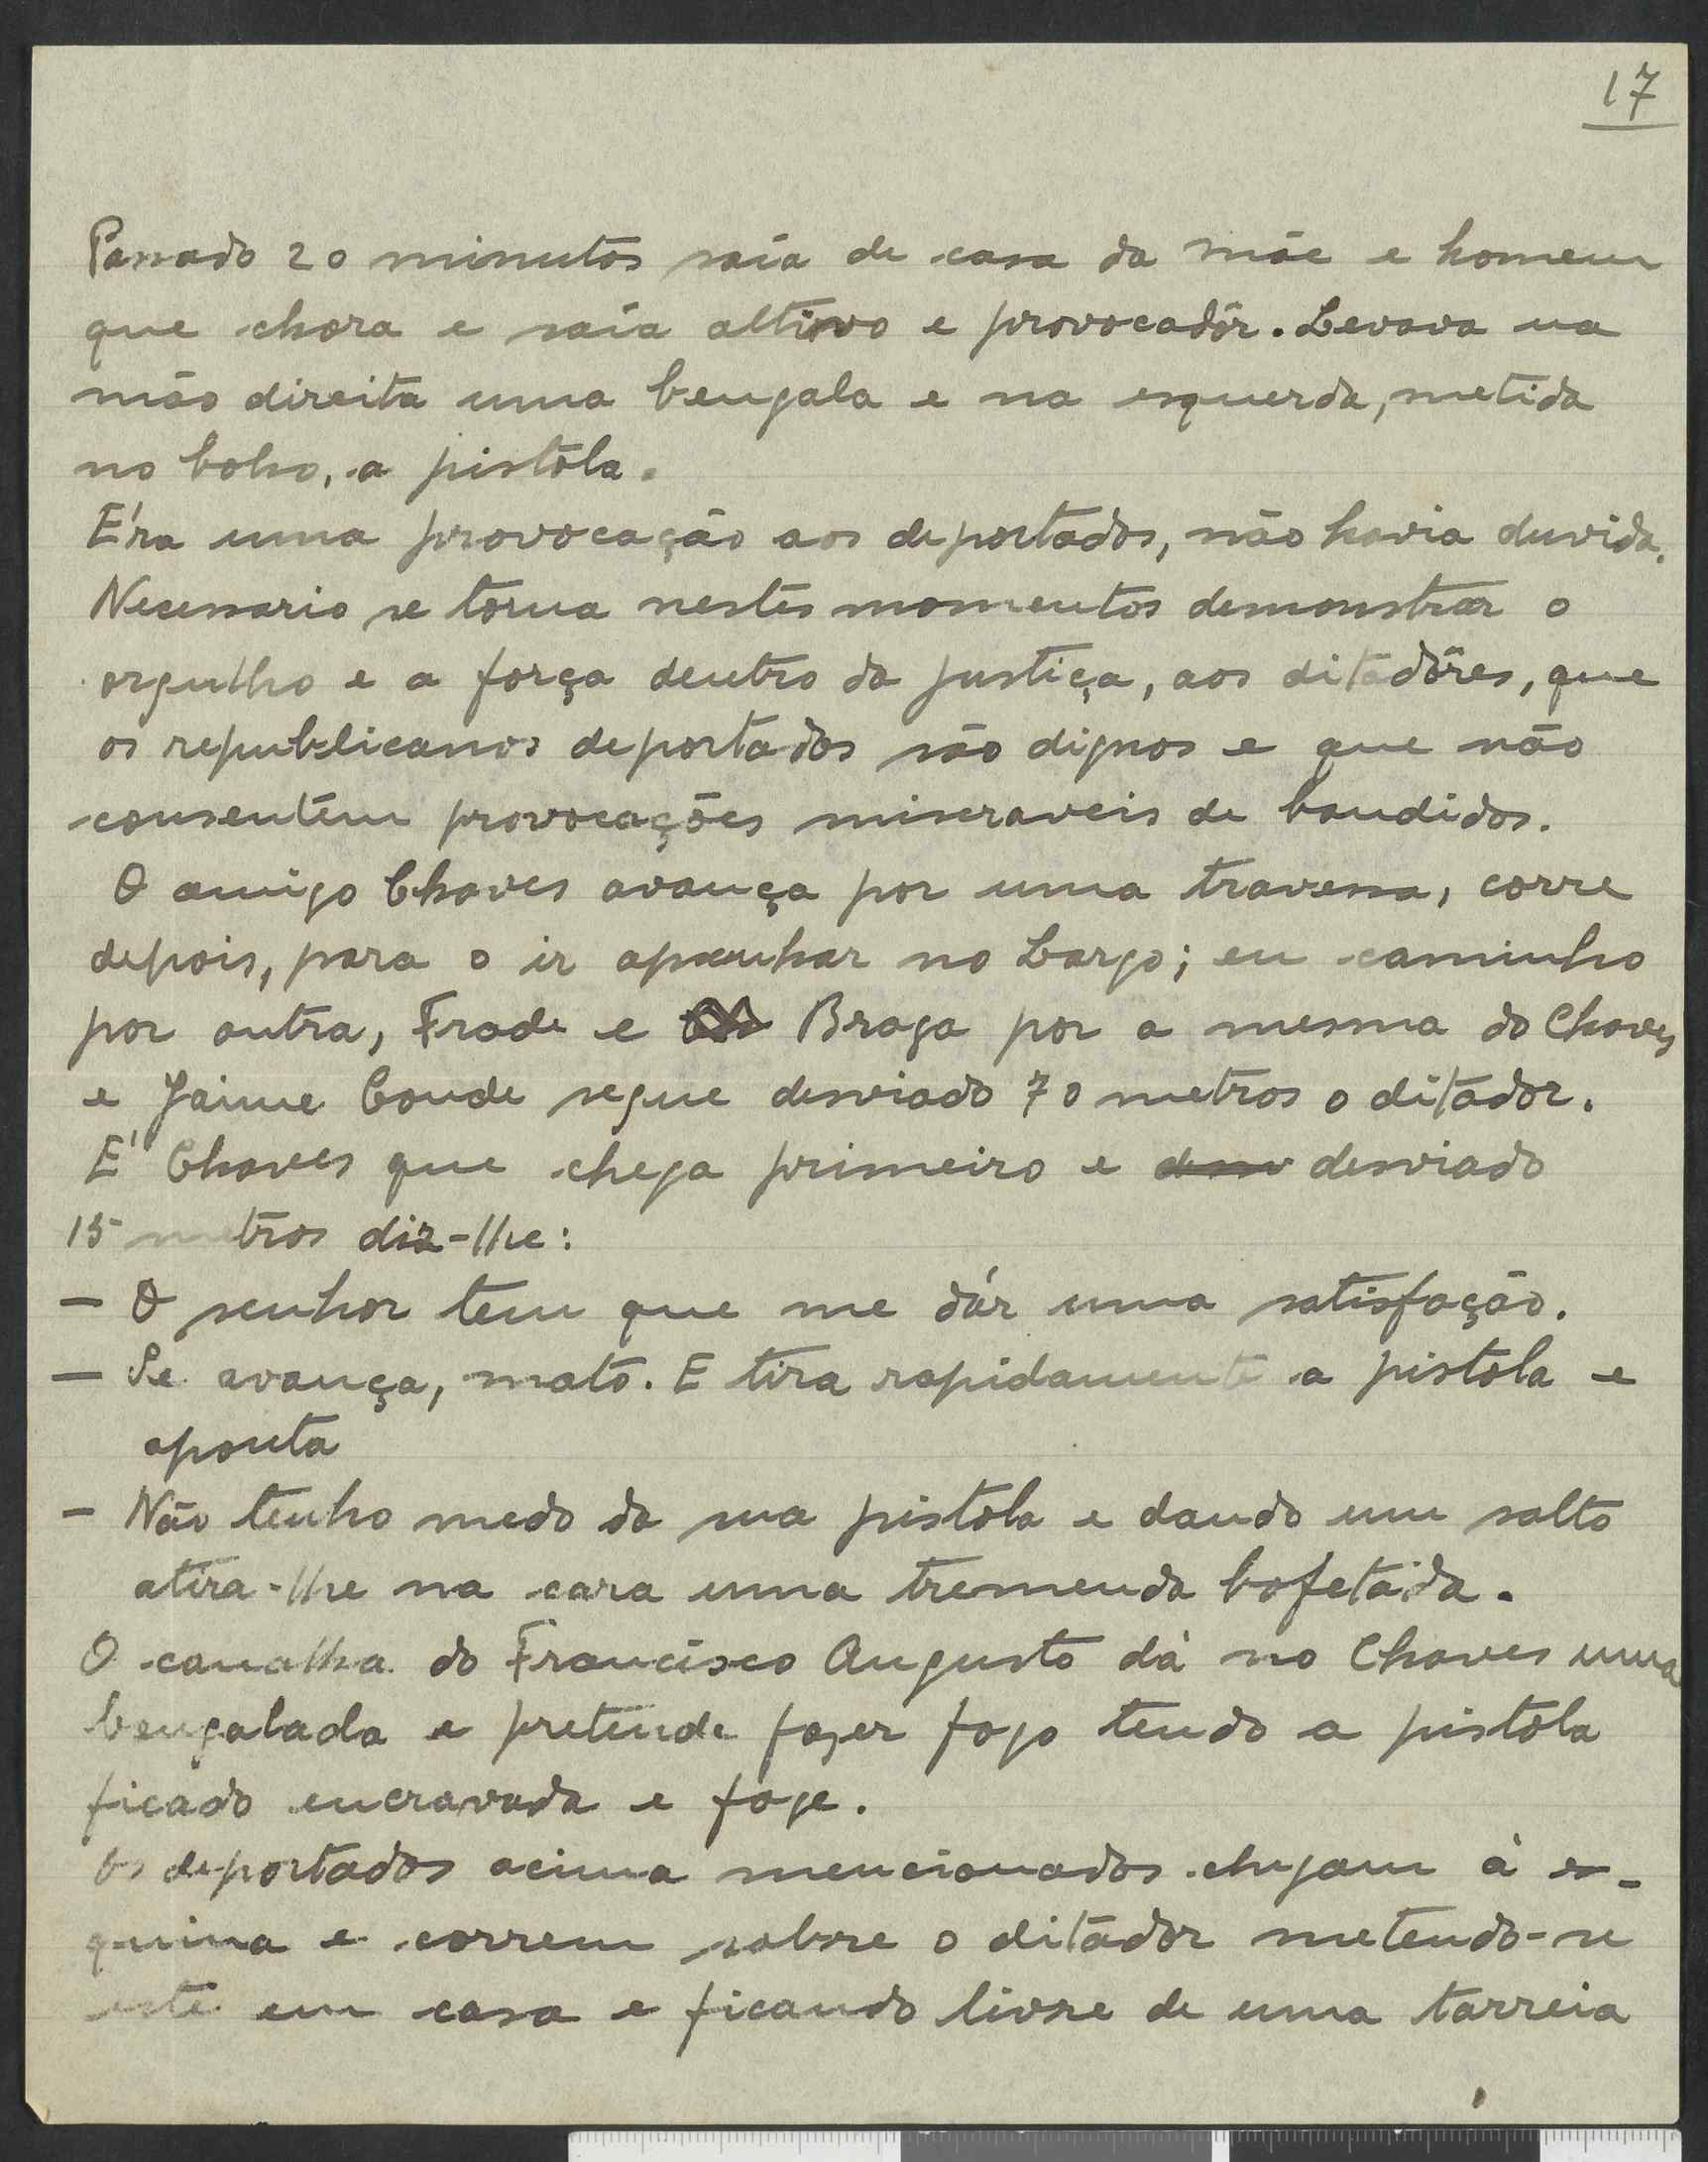 17
Passado 20 minutos saía de casa da mãe e homem
que chora e saía altivo e provocadôr. Levava na
mão direita uma bengala e na esquerda, metida
no bolso, a pistola.
E'ra uma provocação aos deportados, não havia duvida.
Necessario se torna nestes momentos demonstrar o
orgulho e a força dentro da justiça, aos ditadôres, que
os republicanos deportados são dignos e que não
consentem provocações miseraveis de bandidos.
O amigo Chaves avança por uma travessa, corre
depois, para o ir apanhar no Largo; eu caminho
por outra, Frade e Braga por a mesma do Chaves
e Jaime Conde segue desviado 70 metros o ditador.
E' Chaves que chega primeiro e desv desviado
15 metros diz-lhe:
— O senhor tem que me dár uma satisfação.
— Se avança, mato. E tira rapidamente a pistola e
aponta
- Não tenho medo da sua pistola e dando um salto
atira-lhe na cara uma tremenda bofetada.
O canalha do Francisco Augusto dá no Chaves uma
bengalada e pretende fazer fogo tendo a pistola
ficado encravada e foge.
Os deportados acima mencionados chegam á es-
quina e correm sobre o ditador metendo-se
este em casa e ficando livre de uma tarreia